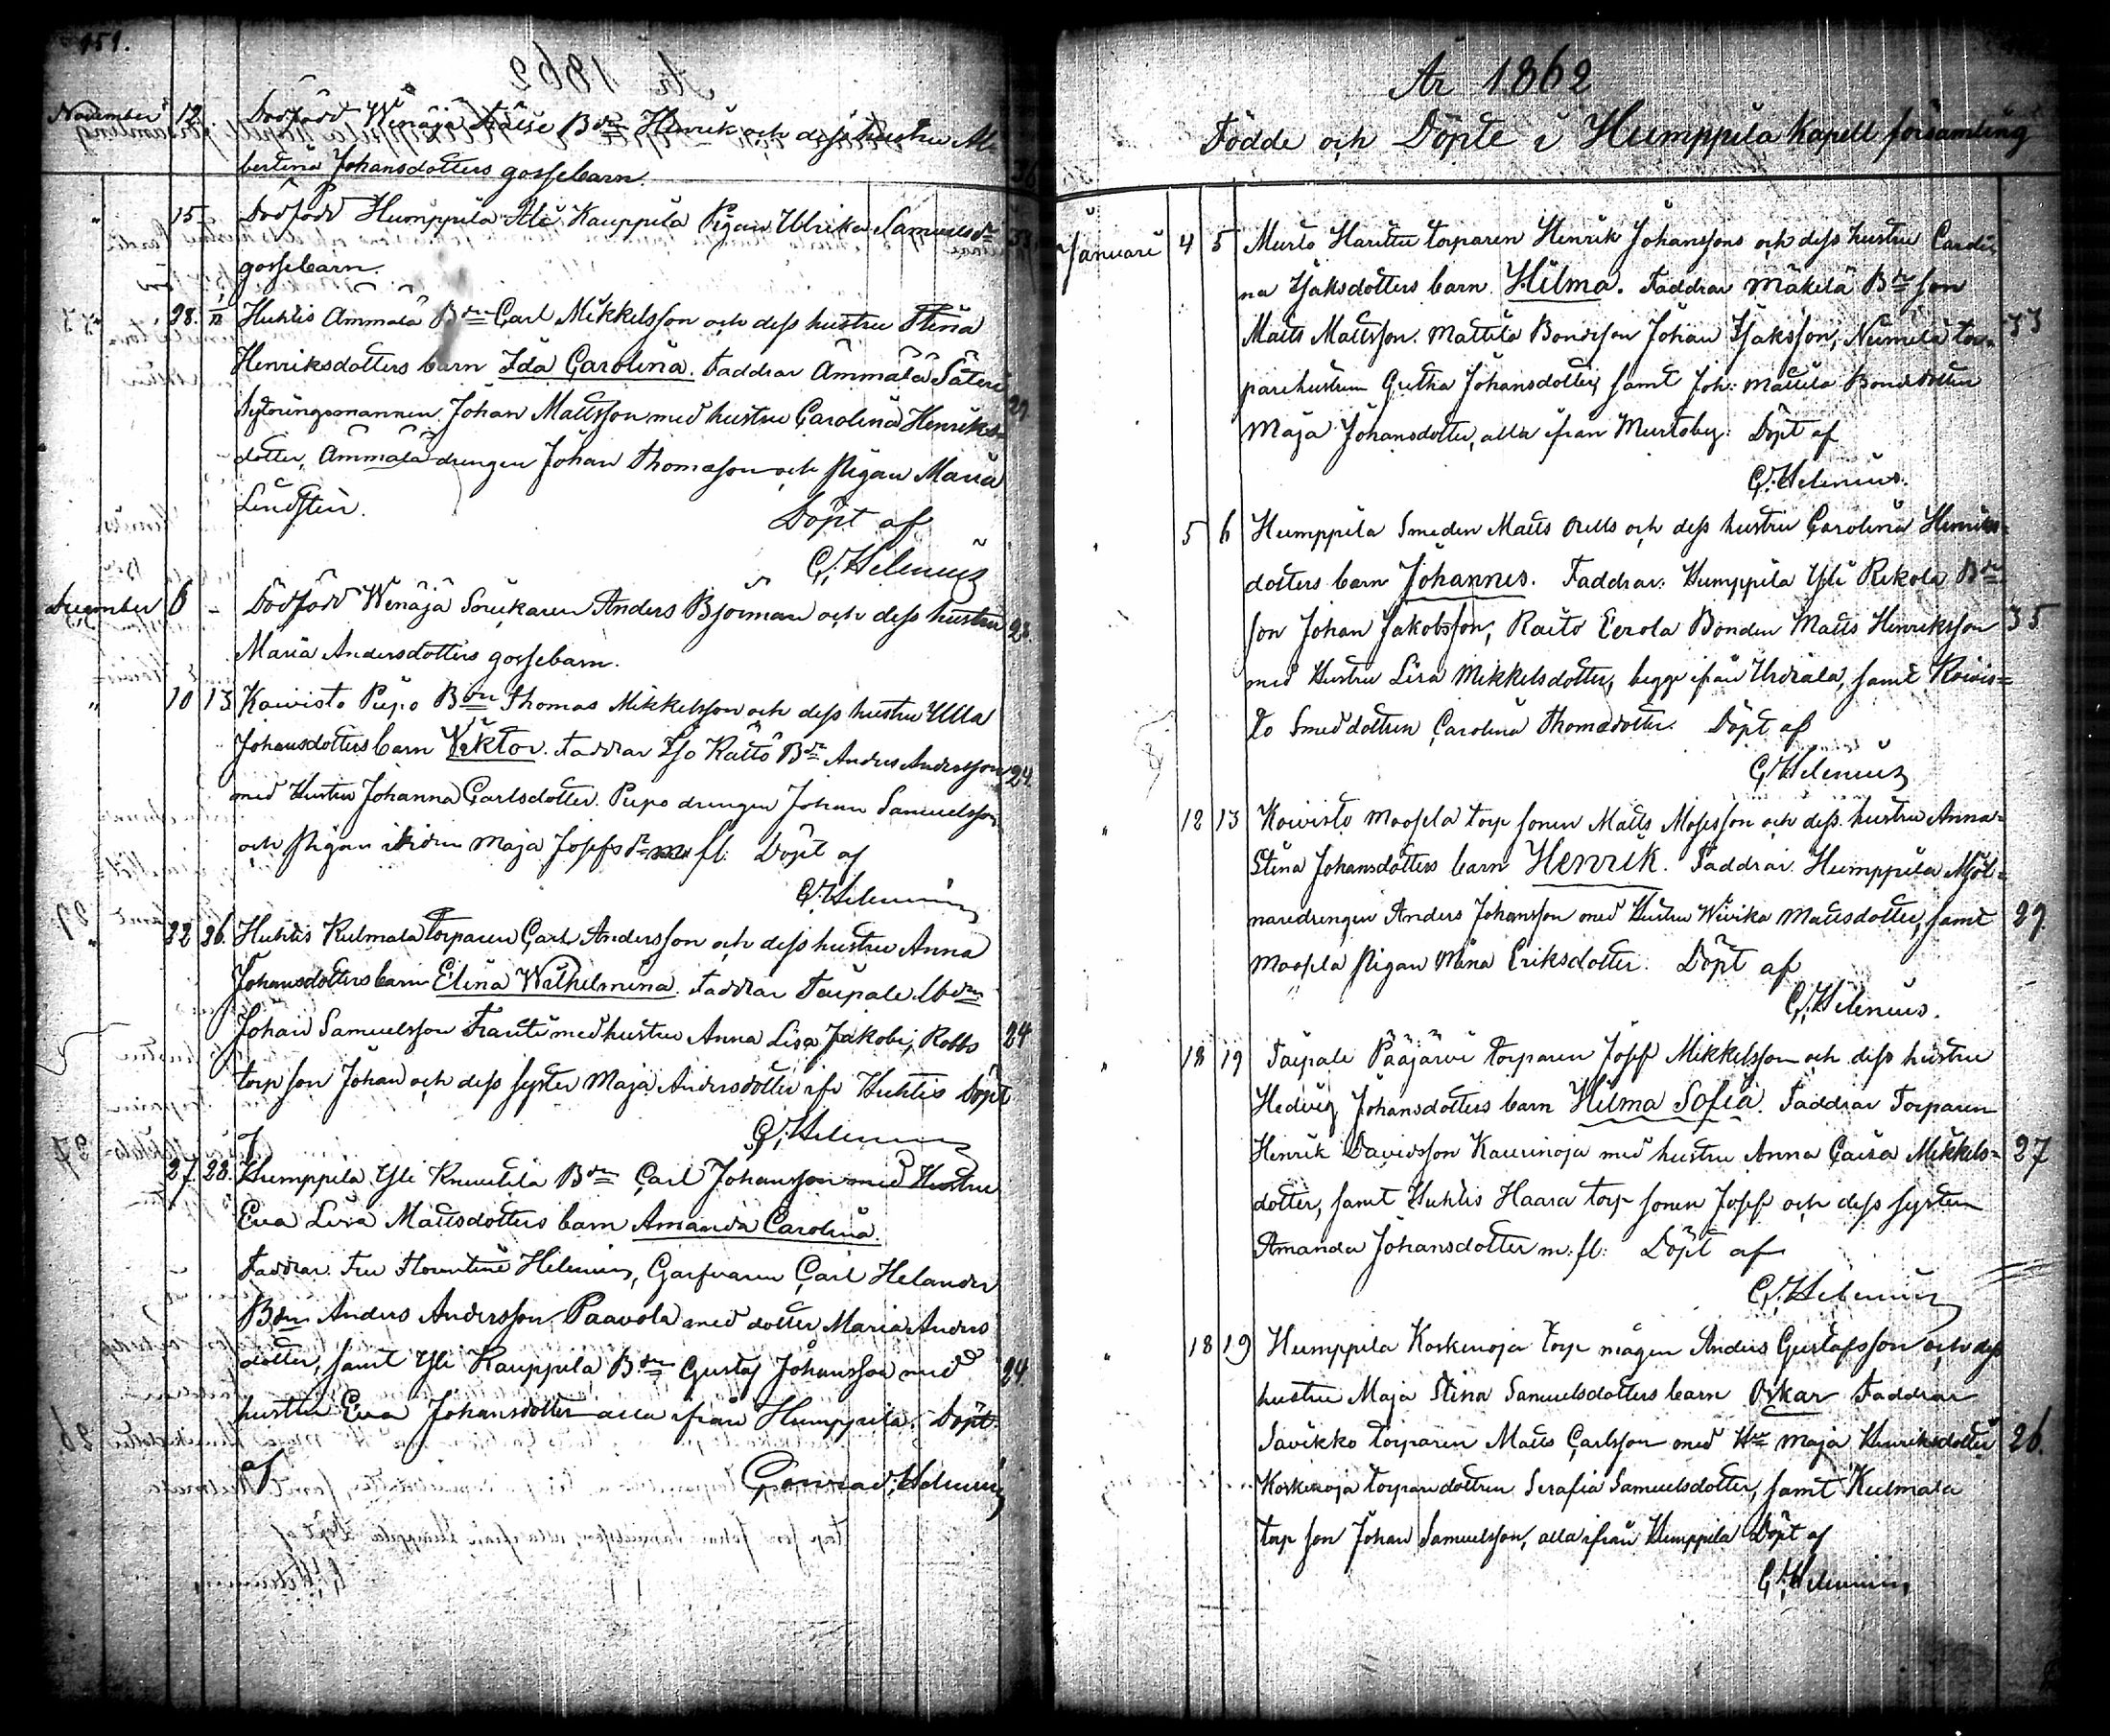 151.
November 12. Dödfödd Winäjä Kaise Bdn Henrik och dess hustru Al-
bertina Johansdotters gossebarn. 36
" 15 Dödfödd Humppila Yli Kauppila Pigan Ulrika Samuelsdr 33
gossebarn.
28. Huhtis Ammälä Bdn Carl Mikkelsson och dess hustru Stina
Henriksdotters barn Ida Carolina. Faddrar Ammälä Säteri
Sytningsmannen Johan Mattsson med hustru Carolina Henriks- 29
dotter, Ammälä drengen Johan Thomasson och Pigan Maria
Lindsten. Döpt af
C. Helenius
December 6 - Dödfödd Winäjä Sockaren Anders Björman och dess hustru 23.
Maria Andersdotters gossebarn.
" 10 13 Koivisto Piipo Bdn Thomas Mikkelsson och dess hustru Ulla
Johansdotters barn Viktor. Faddrar Iso Rättö Bdn Anders Andersson 24
med Hustru Johanna Carlsdotter. Piipo drengen Johan Samuelsson
och Pigan Maja Josefsdr m fl. Döpt af
C. Helenius
" 22 26. Huhtis Kulmala Torparen Carl Andersson och dess hustru Anna
Johansdotters barn Elina Wilhelmina. Faddrar Taipale
Johan Samuelsson Frantti med hustru Anna Lisa Jakobi, Robbs 24
torp son Johan och dess syster Maja Andersdotter ifr Huhtis Döpt
af C. Helenius
27 28. Humppila Yli Knuutila Bdn Carl Johansson med Hustru
Eva Lisa Mattsdotters barn Amanda Carolina.
Faddrar. Fru Florentine Helenius, Garfvaren Carl Helander
Bdn Anders Andersson Paavola med dotter Maria Anders
dotter, samt Yli Kauppila Bdn Gustaf Johansson med 24
hustru Eva Johansdotter alla ifrån Humppila. Döpt
af Conrad Helenius
År 1862
Födde och Döpte i Humppila Kapell församling
Januari 4 5 Murto Harittu torparen Henrik Johanssons och dess hustru Caroli-
na Isaksdotters barn Hilma. Faddrar Mäkilä Bdn son
Matts Mattsson. Mattila Bondeson Johan Isaksson, Niemelä tor- 33
parehustrun Gretha Johansdotter, samt Joh: Mattila Bondedotter
Maja Johansdotter, alla ifrån Murtoby. Döpt af
C. Helenius.
" 5 6 Humppila Smeden Matts Orell och dess hustru Carolina Henriks-
dotters barn Johannes. Faddrar. Humppila Yli Rekola Bde
son Johan Jakobsson, Raito Eerola Bonden Matts Henriksson 35
med Hustru Lisa Mikkelsdotter, begge ifrån Urdiala, samt Koivis-
to Smeddottren Carolina Thomsdotter. Döpt af
C. Helenius
" 12 13 Koivisto Moosela torp sonen Matts Mosesson och dess hustru Anna-
Stina Johansdotters barn Henrik. Faddrar. Humppila Mjöl-
naredrengen Anders Johansson med Hustru Wivika Mattsdotter, samt 29.
Moosela Pigan Mina Eriksdotter. Döpt af
C. Helenius.
" 18 19 Taipale Pääjärvi Torparen Josef Mikkelsson och dess hustru
Hedvig Johansdotters barn Hilma Sofia. Faddrar Torparen
Henrik Davidsson Kaurinoja med hustru Anna Caisa Mikkels- 27
dotter, samt Huhtis Haara torp sonen Josef och dess syster
Amanda Johansdotter m: fl: Döpt af
C. Helenius
" 18 19 Humppila Koskenoja torp mågen Anders Gustafsson och dess
hustru Maja Stina Samuelsdotters barn Oskar Faddrar
Savikko torparen Matts Carlsson med Hru Maja Henriksdotter 26.
Koskenoja torparedottren Serafia Samuelsdotter, samt Kulmala
torp son Johan Samuelsson, alla ifrån Humppila Döpt af
C. Helenius